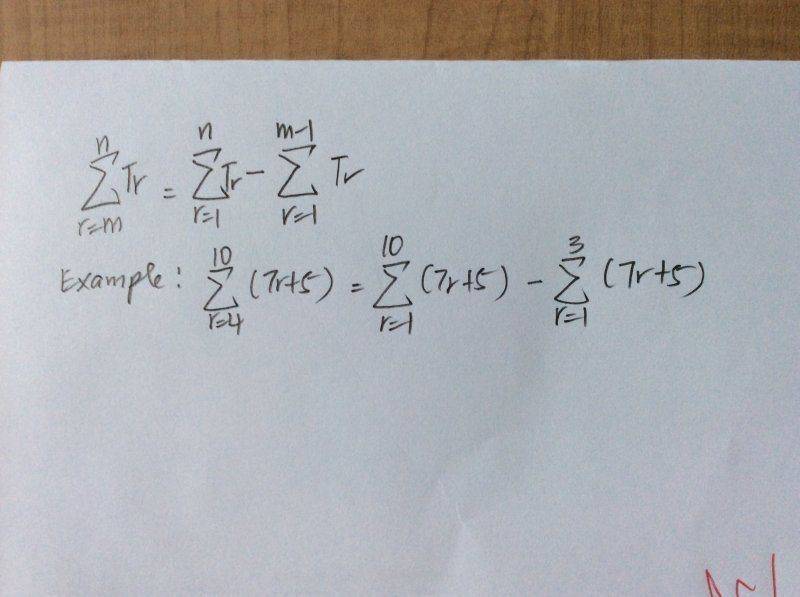 \sum_{r=m}^{n} Tr = \sum_{r=1}^{n} Tr - \sum_{r=1}^{m-1} Tr
Example: \sum_{r=4}^{10} (7r+5) = \sum_{r=1}^{10} (7r+5) - \sum_{r=1}^{3} (7r+5)